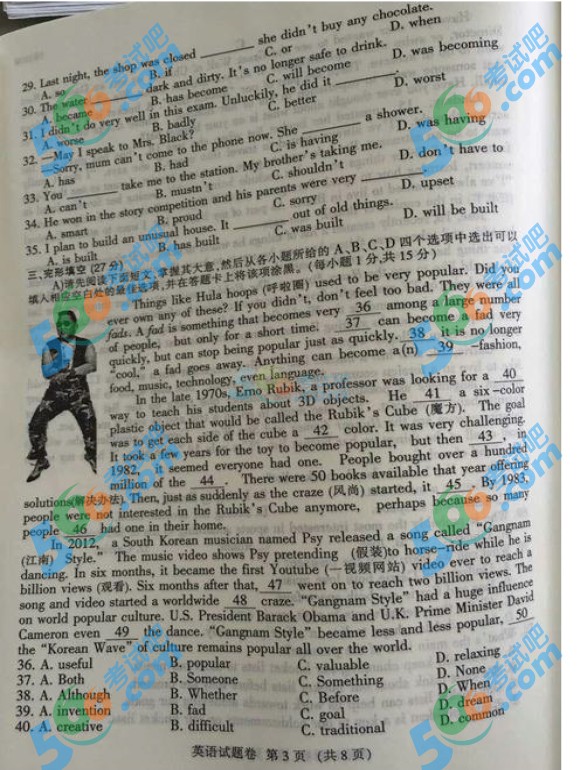 29. Last night, the shop was closed ________ she didn't buy any chocolate.
A. so B. if C. or D. when
30. The water ________ dark and dirty. It's no longer safe to drink.
A. became B. has become C. will become D. was becoming
31. I didn't do very well in this exam. Unluckily, he did it ________.
A. worse B. badly C. better D. worst
32. —May I speak to Mrs. Black?
—Sorry, mum can't come to the phone now. She ________ a shower.
A. has B. had C. is having D. was having
33. You ________ take me to the station. My brother's taking me.
A. can't B. mustn't C. shouldn't D. don't have to
34. He won in the story competition and his parents were very ________.
A. smart B. proud C. sorry D. upset
35. I plan to build an unusual house. It ________ out of old things.
A. is built B. has built C. was built D. will be built
三、完形填空 (27 分)
A)请先阅读下面短文,掌握其大意,然后从各小题所给的 A、B、C、D 四个选项中选出可以
填入相应空白处的最佳选项,并在答题卡上将该项涂黑。(每小题 1 分,共 15 分)
Things like Hula hoops (呼啦圈) used to be very popular. Did you
ever own any of these? If you didn't, don't feel too bad. They were all
fads. A fad is something that becomes very 36 among a large number
of people, but only for a short time. 37 can become a fad very
quickly, but can stop being popular just as quickly. 38 it is no longer
"cool," a fad goes away. Anything can become a(n) 39 —fashion,
food, music, technology, even language.
In the late 1970s, Erno Rubik, a professor was looking for a 40
way to teach his students about 3D objects. He 41 a six-color
plastic object that would be called the Rubik's Cube (魔方). The goal
was to get each side of the cube 42 color. It was very challenging.
It took a few years for the toy to become popular, but then 43, in
1982, it seemed everyone had one. People bought over a hundred
million of the 44. There were 50 books available that year offering
solutions(解决办法). Then, just as suddenly as the craze (风尚) started, it 45. By 1983,
people were not interested in the Rubik's Cube anymore, perhaps because so many
people 46 had one in their home.
In 2012, a South Korean musician named Psy released a song called "Gangnam
(江南) Style." The music video shows Psy pretending (假装)to horse-ride while he is
dancing. In six months, it became the first Youtube (一视频网站) video ever to reach a
billion views (观看). Six months after that, 47 went on to reach two billion views. The
song and video started a worldwide 48 craze. "Gangnam Style" had a huge influence
on world popular culture. U.S. President Barack Obama and U.K. Prime Minister David
Cameron even 49 the dance. "Gangnam Style" became less and less popular, 50
the "Korean Wave" of culture remains popular all over the world.
36. A. useful B. popular C. valuable D. relaxing
37. A. Both B. Someone C. Something D. None
38. A. Although B. Whether C. Before D. When
39. A. invention B. fad C. goal D. dream
40. A. creative B. difficult C. traditional D. common
英语试题卷 第 3 页 (共 8 页)